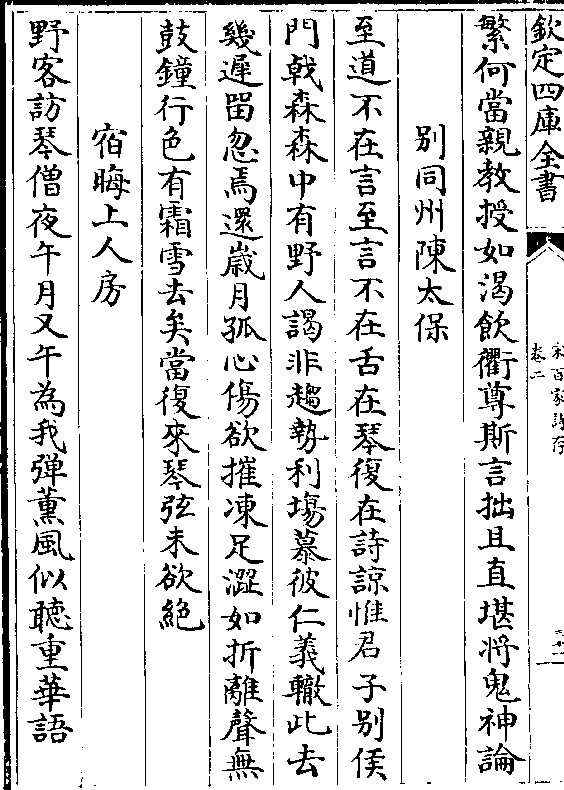 欽定四庫全書
宋百家詩存
卷二
三十二
繁何當親教授如渴飲衢尊斯言拙且直堪將鬼神論
別同州陳太保
至道不在言至言不在舌在琴復在詩諒惟君子別侯
門㦸森森中有野人謁非趨勢利場慕彼仁義轍此去
幾遲留忽焉還歲月孤心傷欲摧凍足澀如折離聲無
鼓鐘行色有霜雪去矣當復來琴弦未欲絶
宿晦上人房
野客訪琴僧夜午月又午為我彈薰風似聴重華語